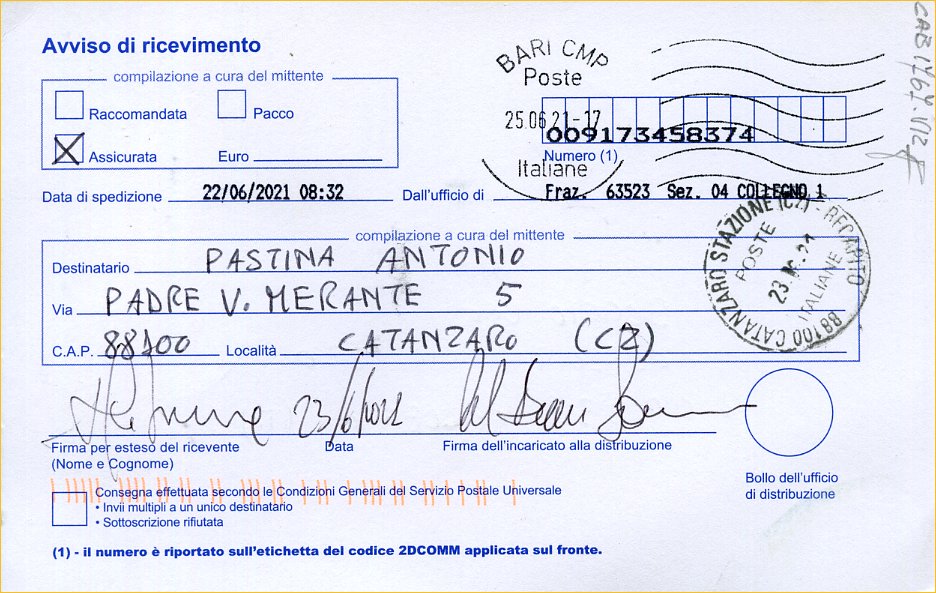 Avviso di ricevimento
compilazione a cura del mittente
Raccomandata
Pacco
Assicurata
Euro
BARI CMP
Poste
25.06.21-17
Italiane
009173458374
Numero (1)
Data di spedizione 22/06/2021 08:32 Dall'ufficio di Fraz. 63523 Sez. 04 COLLEGNO 1
compilazione a cura del mittente
Destinatario PASTINA ANTONIO
Via PADRE V. MERANTE 5
C.A.P. 88100 Località CATANZARO (CZ)
88100 CATANZARO STAZIONE (CZ) - RECAPITO
POSTE
ITALIANE
23/6/2021
Firma per esteso del ricevente
(Nome e Cognome)
Data
Firma dell'incaricato alla distribuzione
Bollo dell'ufficio
di distribuzione
Consegna effettuata secondo le Condizioni Generali del Servizio Postale Universale
• Invii multipli a un unico destinatario
• Sottoscrizione rifiutata
(1) - il numero è riportato sull'etichetta del codice 2DCOMM applicata sul fronte.